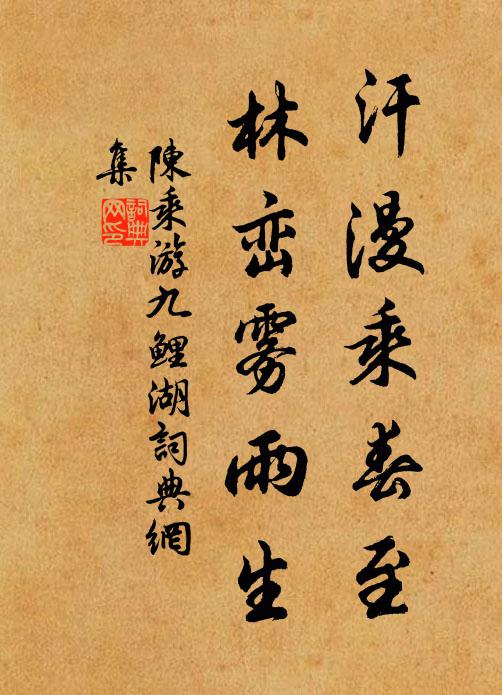 汗漫乘春至
林峦雾雨生
陳乘游九鯉湖詞典網
集
詞典
网印